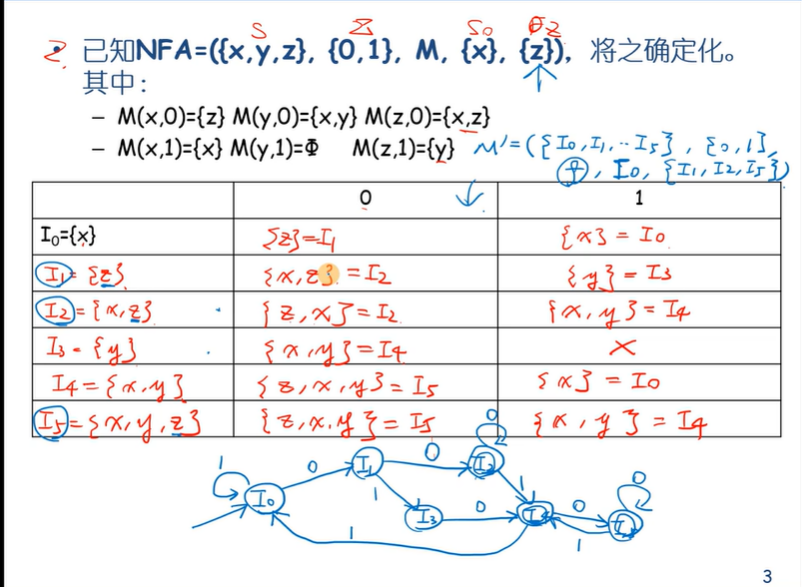 S Σ S₀ ⊕Z
2. 已知NFA=({x,y,z}, {0,1}, M, {x}, {z}), 将之确定化。
其中:
– M(x,0)={z} M(y,0)={x,y} M(z,0)={x,z}
– M(x,1)={x} M(y,1)=Φ M(z,1)={y} M'=({I₀,I₁,··I₅}, {0,1},
, I₀, {I₁,I₂,I₅})
0 1
I₀={x} {z}=I₁ {x}=I₀
I₁={z} {x,z}=I₂ {y}=I₃
I₂={x,z} {z,x}=I₂ {x,y}=I₄
I₃={y} {x,y}=I₄ ×
I₄={x,y} {z,x,y}=I₅ {x}=I₀
I₅={x,y,z} {z,x,y}=I₅ {x,y}=I₄
0
1 0 I₁ 0 I₂ 0
I₀ 1 I₃ 0 I₄ 1 0 I₅
1 1
3